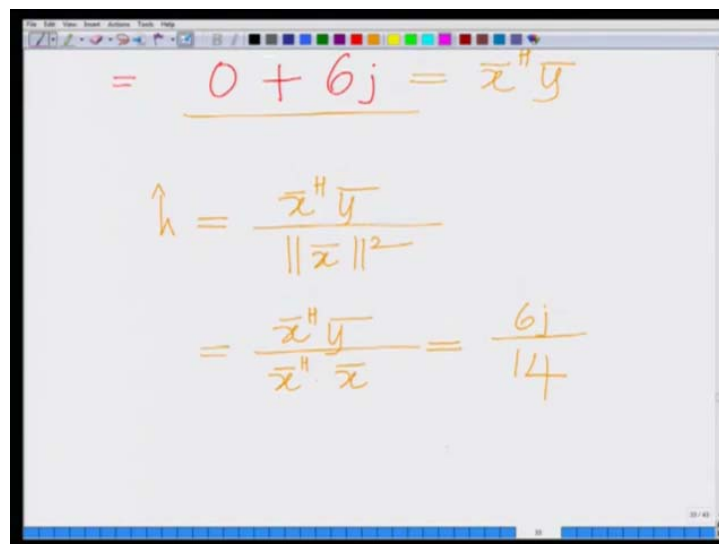 File Edit View Insert Actions Tools Help
= 0 + 6j = x̄ᴴ ȳ
ĥ = x̄ᴴ ȳ / ||x̄||²
= x̄ᴴ ȳ / x̄ᴴ · x̄ = 6j / 14